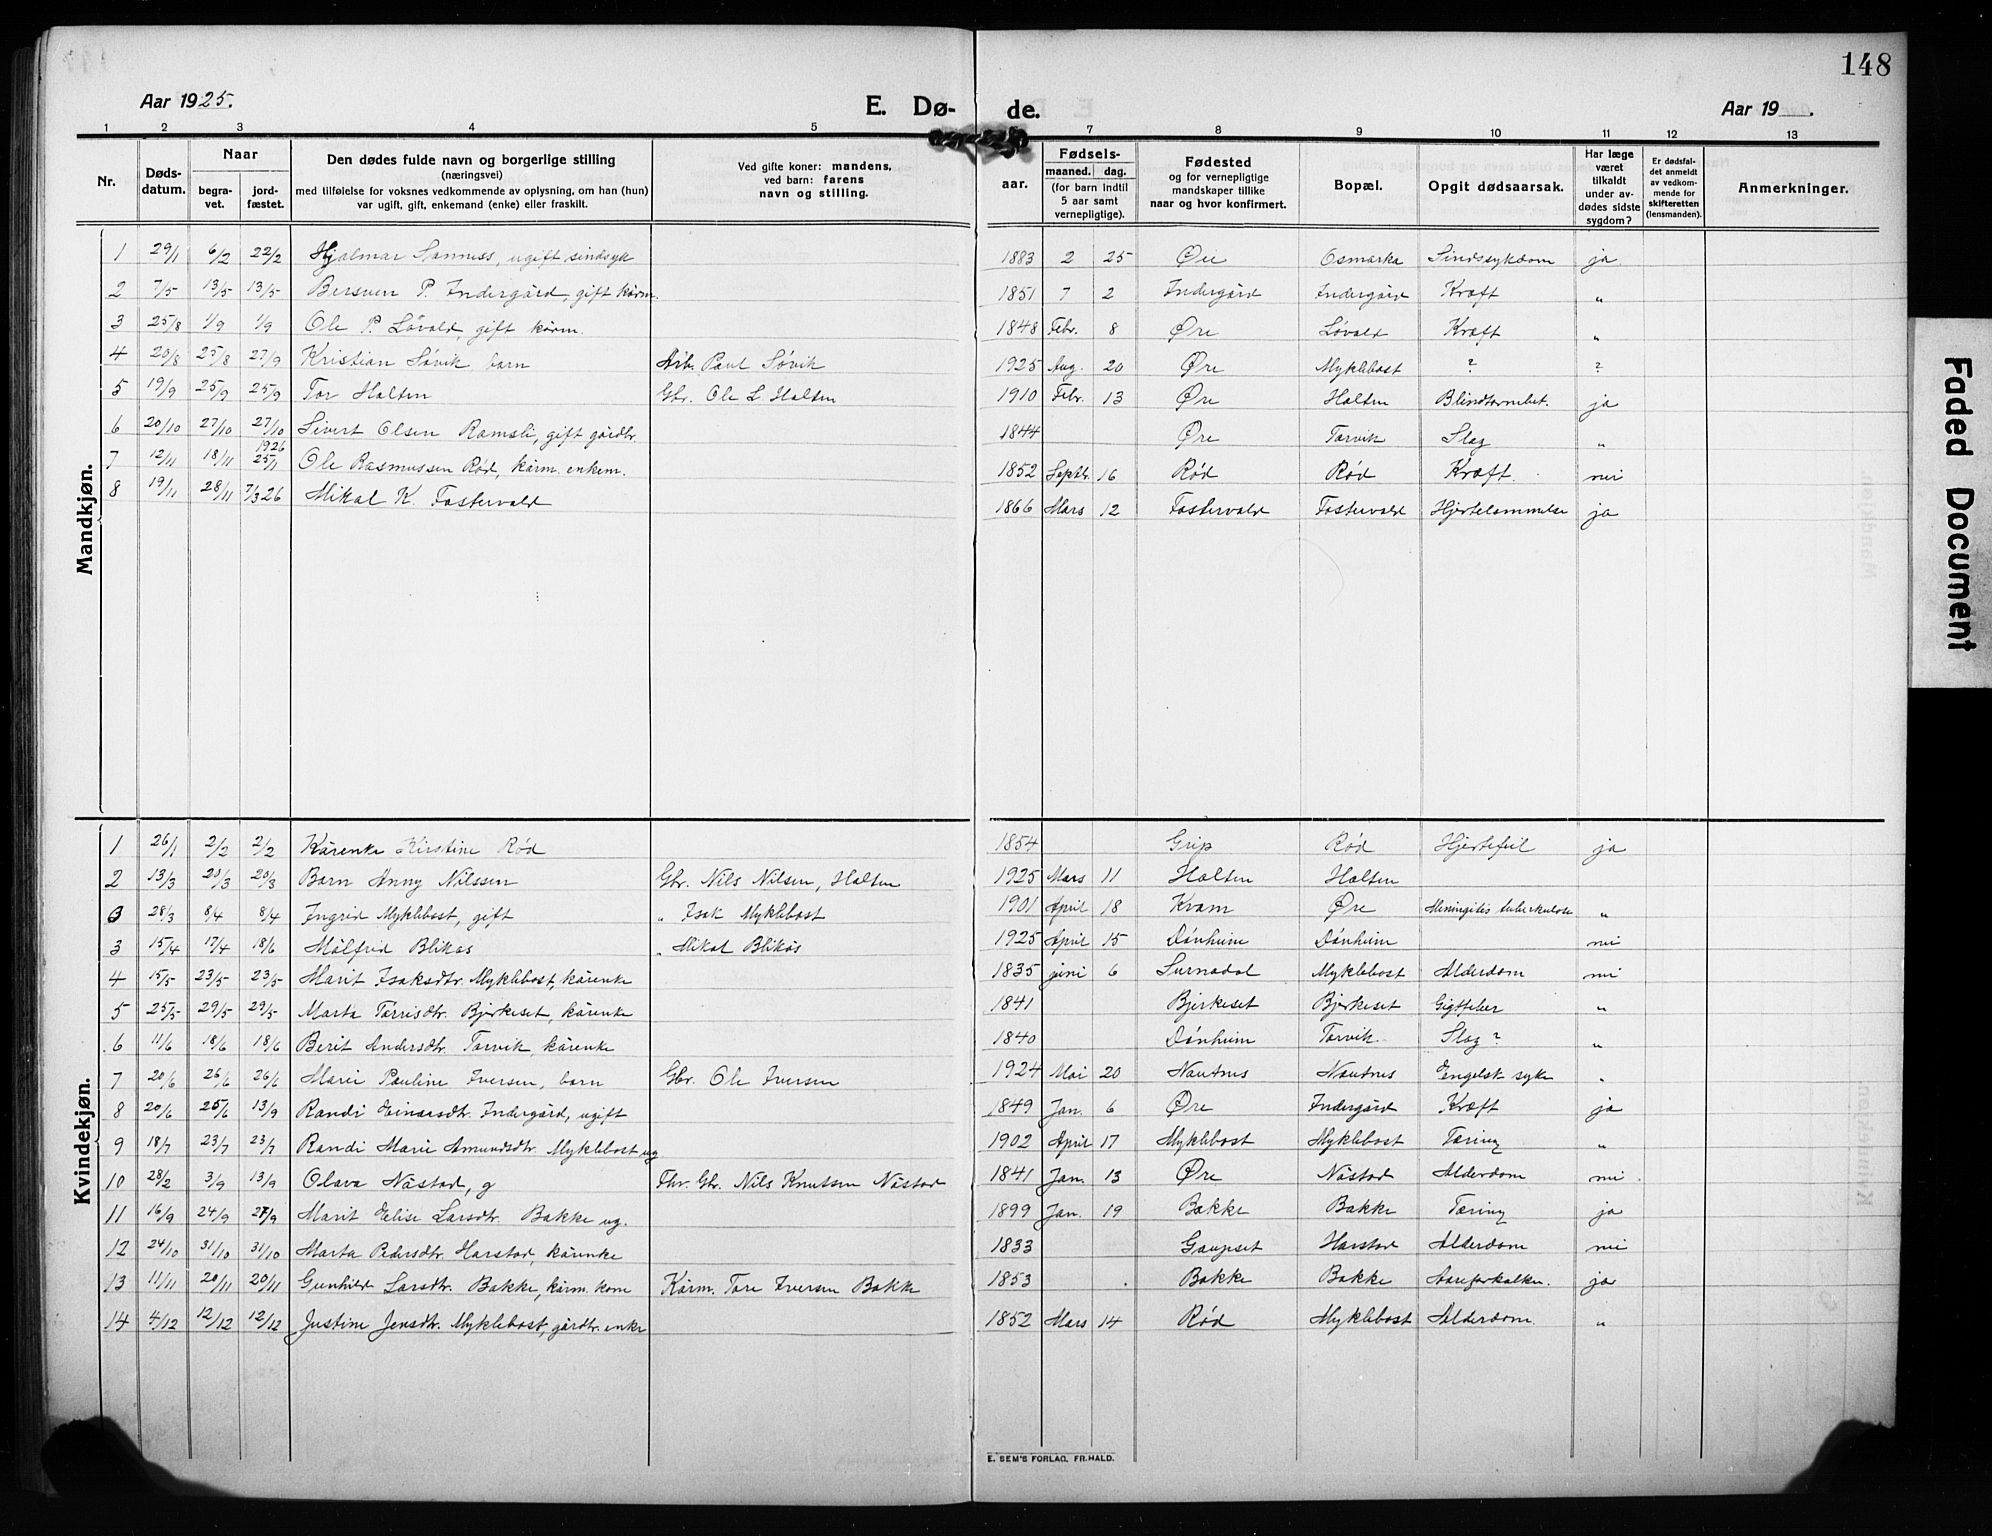 148
Aar 1925. E. Dø- de. Aar 19 .
1 2 3 4 5 7 8 9 10 11 12 13
Nr. Døds-datum. Naar begra-vet. jord-fæstet. Den dødes fulde navn og borgerlige stilling (næringsvei) med tilføielse for voksnes vedkommende av oplysning, om han (hun) var ugift, gift, enkemand (enke) eller fraskilt. Ved gifte koner: mandens, ved barn: farens navn og stilling. aar. Fødsels- maaned. dag. (for barn indtil 5 aar samt vernepligtige). Fødested og for vernepligtige mandskaper tillike naar og hvor konfirmert. Bopæl. Opgit dødsaarsak. Har læge været tilkaldt under av-dødes sidste sygdom? Er dødsfal-det anmeldt av vedkom-mende for skifteretten (lensmanden). Anmerkninger.
Mandkjøn.
1 29/1 6/2 22/2 Hjalmar Sanness, ugift sindsyk 1883 2 25 Øre Osmarka Sindssykdom ja.
2 7/5 13/5 13/5 Bersven P. Indergård, gift kårm. 1851 7 2 Indergård Indergård Kræft "
3 25/8 1/9 1/9 Ole P. Løvald, gift kårm. 1848 Febr. 8 Øre Løvald Kræft "
4 20/8 25/8 27/9 Kristian Søvik, barn Arb. Paul Søvik 1925 Aug. 20 Øre Myklebost ? ?
5 19/9 25/9 25/9 Tor Holten Gbr. Ole L. Holten 1910 Febr. 13 Øre Holten Blindtarmbet. ja
6 20/10 27/10 27/10 Sivert Olsen Ramsli, gift gårdbr. 1844 Øre Torvik Slag "
7 12/11 18/11 1926 25/1 Ole Rasmussen Rød, kårm. enkem. 1852 Septbr. 16 Rød Rød Kræft. nei
8 19/11 28/11 7/3 26 Mikal K. Fostervold 1866 Mars 12 Fostervold Fostervold Hjertelammelse ja
Kvindekjøn.
1 26/1 2/2 2/2 Kårenke Kirstine Rød 1854 Grip Rød Hjertefeil ja
2 13/3 20/3 20/3 Barn Anny Nilssen Gbr. Nils Nilsen, Holten 1925 Mars 11 Holten Holten
3 28/3 8/4 8/4 Ingrid Myklebost, gift " Isak Myklebost 1901 April 18 Kvam Øre Meningitis tuberkulose "
3 15/4 17/4 18/6 Målfrid Blikås " Mikal Blikås 1925 April 15 Dønheim Dønheim nei
4 15/5 23/5 23/5 Marit Isaksdtr. Myklebost, kårenke 1835 juni 6 Surnadal Myklebost Alderdom nei
5 25/5 29/5 29/5 Marta Tørrisdtr. Bjerkeset, kårenke 1841 Bjerkeset Bjerkeset Gigtfeber "
6 11/6 18/6 18/6 Berit Andersdtr. Torvik, kårenke 1840 Dønheim Torvik. Slag? "
7 20/6 26/6 26/6 Marie Pauline Iversen, barn Gbr. Ole Iversen 1924 Mai 20 Nautnes Nautnes Engelsk syke "
8 20/6 25/6 13/9 Randi Einarsdtr. Indergård, ugift 1849 Jan. 6 Øre Indergård Kræft ja
9 18/7 23/7 23/7 Randi Marie Amundsdtr. Myklebost ug 1902 April 17 Myklebost Myklebost Tæring "
10 28/2 3/9 13/9 Olava Nåstad, g Fhv. Gbr. Nils Knutsen Nåstad 1841 Jan. 13 Øre Nåstad Alderdom nei.
11 16/9 24/9 27/9 Marit Elise Larsdtr. Bakke ug. 1899 Jan. 19 Bakke Bakke Tæring ja
12 24/10 31/10 31/10 Marta Pedersdtr. Harstad, kårenke 1833 Gaupset Harstad Alderdom nei
13 11/11 20/11 20/11 Gunhild Larsdtr. Bakke, kårm. kone Kårm. Tore Iversen Bakke 1853 Bakke Bakke Aareforkalkn. ja
14 4/12 12/12 12/12 Justine Jensdtr. Myklebost, gårdbr. enke 1852 Mars 14 Rød Myklebost Alderdom. "
E. SEM'S FORLAG, FR.HALD.
Faded Document